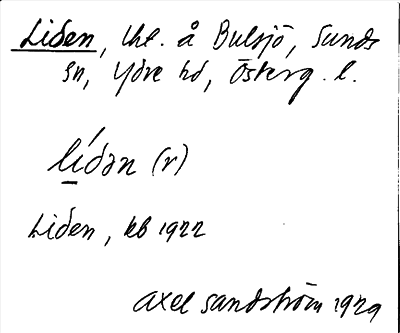 Liden, lht. å Bulsjö, Sunds
sn, Ydre hd, Österg. l.
lídən (r)
Liden, kb 1922
Axel Sandström 1929